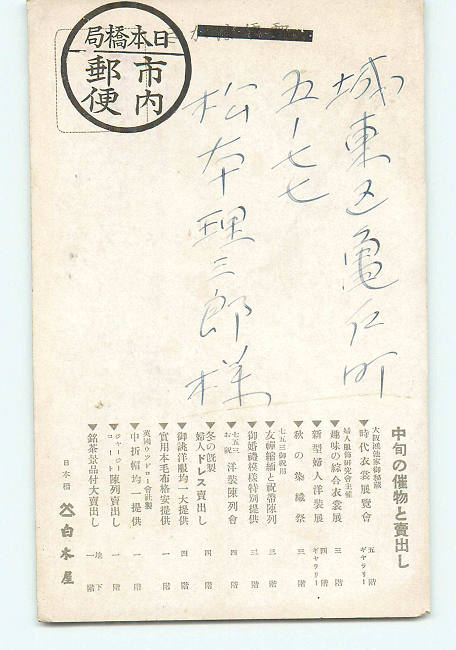 日本橋局
市内
郵便
城東区亀仁町
五ー七七
松本理三郎様
中旬の催物と賣出し
大阪鴻池家御秘藏
▼時代衣裳展覽會 五階ギャラリー
婦人服飾研究會主催
▼趣味の綜合衣裳展 三階
▼新型婦人洋裝展 四階ギャラリー
▼秋の染織祭 三階
七五三御祝用
▼友禪縮緬と祝着陳列 三階
▼御婚禮模樣特別提供 三階
▼七五三お祝洋裝陳列會 四階
▼冬の既製婦人ドレス賣出し 四階
▼御誂洋服均一大提供 四階
▼實用本毛布格安提供 一階
英國ウッドロー會社製
▼中折帽均一提供 一階
▼ジャージーコート陳列賣出し 一階
▼銘茶景品付大賣出し 地下一階
日本橋 白木屋